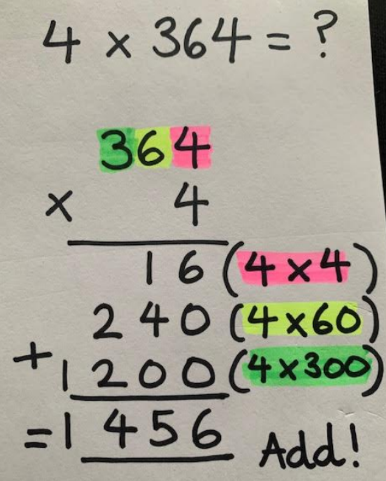 4 × 364 = ?
364
× 4
16 (4×4)
240 (4×60)
+1200 (4×300)
=1456 Add!